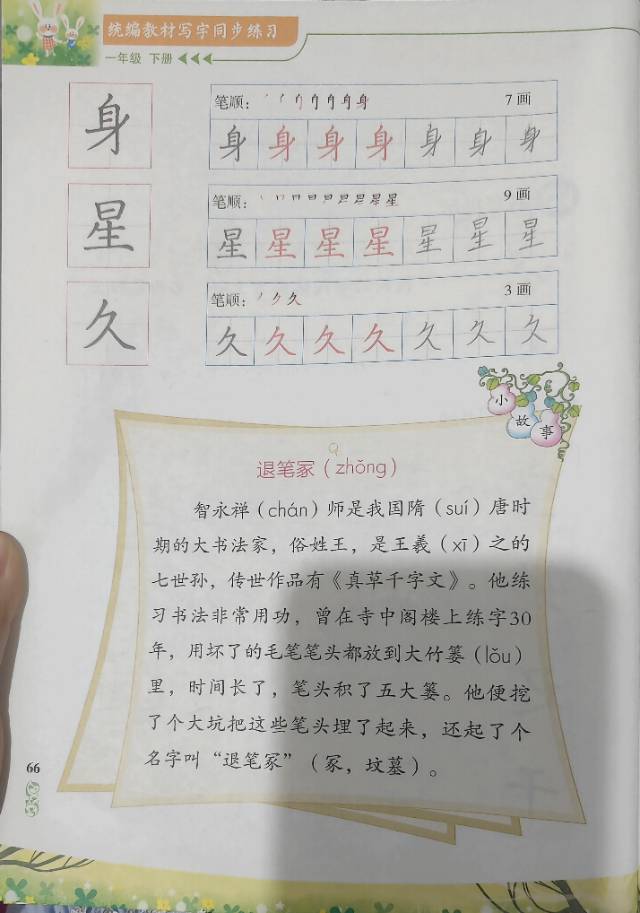 统编教材写字同步练习
一年级 下册
身
笔顺：
7画
身 身 身 身 身 身 身
星
笔顺：
9画
星 星 星 星 星 星 星
久
笔顺： 丿 ク 久
3画
久 久 久 久 久 久 久
小故事
退笔冢（zhǒng）
智永禅（chán）师是我国隋（suí）唐时
期的大书法家，俗姓王，是王羲（xī）之的
七世孙，传世作品有《真草千字文》。他练
习书法非常用功，曾在寺中阁楼上练字30
年，用坏了的毛笔笔头都放到大竹篓（lǒu）
里，时间长了，笔头积了五大篓。他便挖
了个大坑把这些笔头埋了起来，还起了个
名字叫“退笔冢”（冢，坟墓）。
66